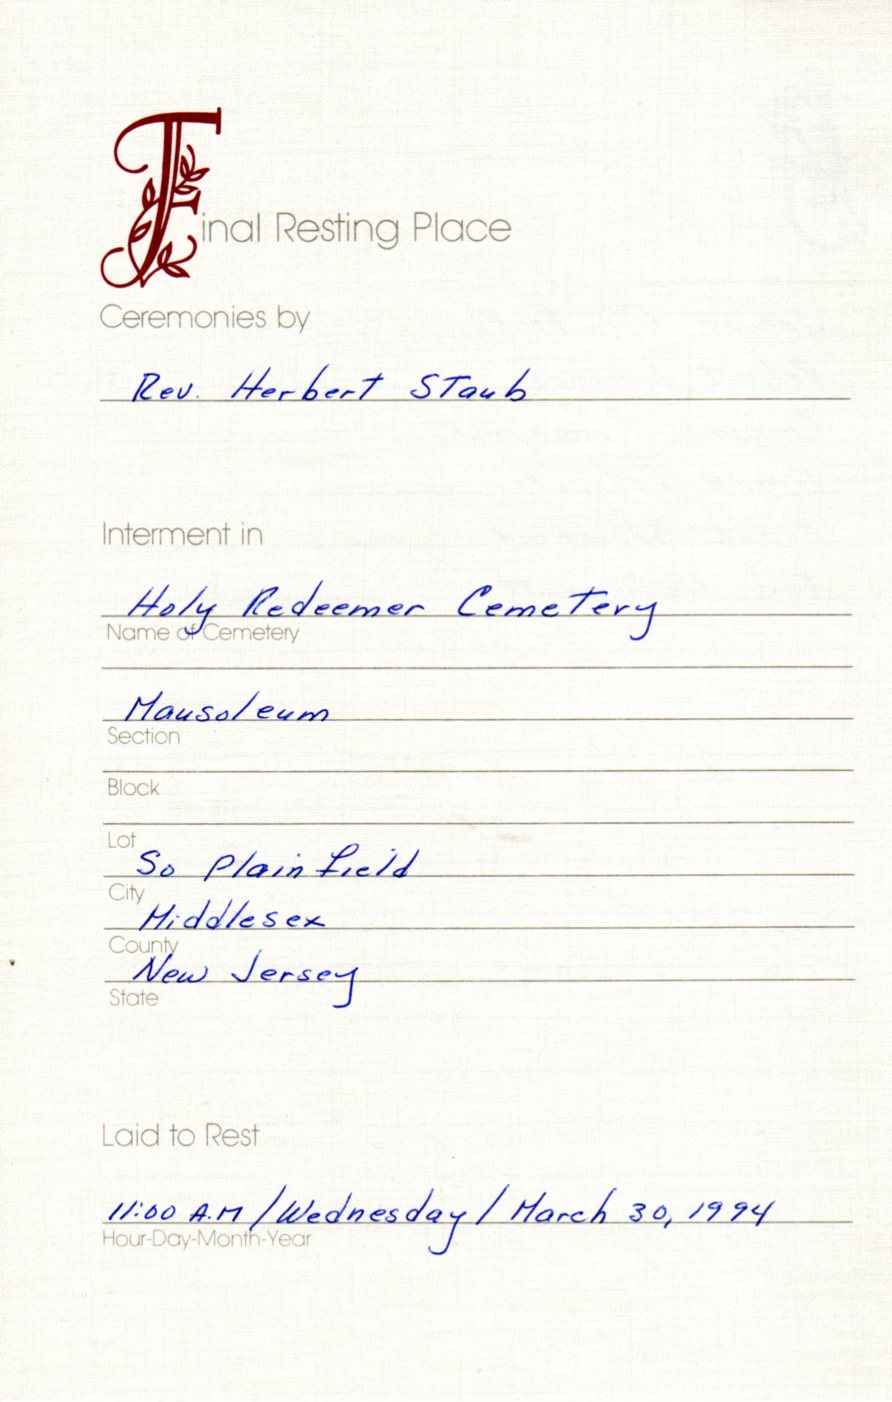 Final Resting Place
Ceremonies by
Rev. Herbert Staub
Interment in
Holy Redeemer Cemetery
Name of Cemetery
Mausoleum
Section
Block
Lot
So Plainfield
City
Middlesex
County
New Jersey
State
Laid to Rest
11:00 A.M / Wednesday / March 30, 1994
Hour-Day-Month-Year